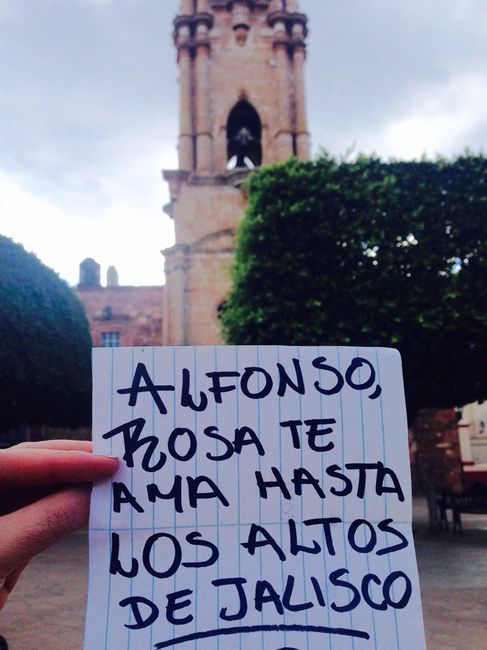 ALFONSO,
ROSA TE
AMA HASTA
LOS ALTOS
DE JALISCO